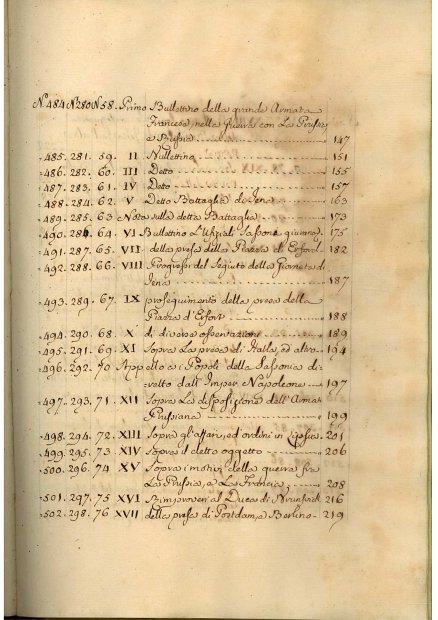 N.484 N.280 N.58. Primo Bullettino della grande Armata
Francese, nella Guerra con La Prussia,
e Russia 147
485. 281. 59. II Bullettino 151
486. 282. 60. III Detto 155
487. 283. 61. IV Detto 157
488. 284. 62. V Detto Battaglia di Jena 163
489. 285. 63 Nota sulla detta Battaglia 173
490. 286. 64. VI Bullettino L'Uffiziali Sassone giurano 175
491. 287. 65. VII della presa della Piazza di Erford 182
492. 288. 66. VIII Progressi del Seguito della Giornata di
Jena 187
493. 289. 67. IX proseguimento della presa della
Piazza d'Erfort 188
494. 290. 68. X di diverse osservazioni 189
495. 291. 69. XI Sopra La presa di Halla, ed altro 194
496. 292. 70 Appello a i Popoli della Sassonia di-
retto dall'Imper. Napoleone 197
497. 293. 71. XII Sopra La disposizione dell'Armata
Prussiana 199
498. 294. 72. XIII Sopra gl'affari, ed ordini in Lipsia 201
499. 295. 73. XIV Sopra il detto oggetto 206
500. 296. 74 XV Sopra i motivi della guerra fra
La Prussia, e La Francia 208
501. 297. 75 XVI Rimproveri al Duca di Brunswick 216
502. 298. 76 XVII della presa di Postdam, e Berlino 219